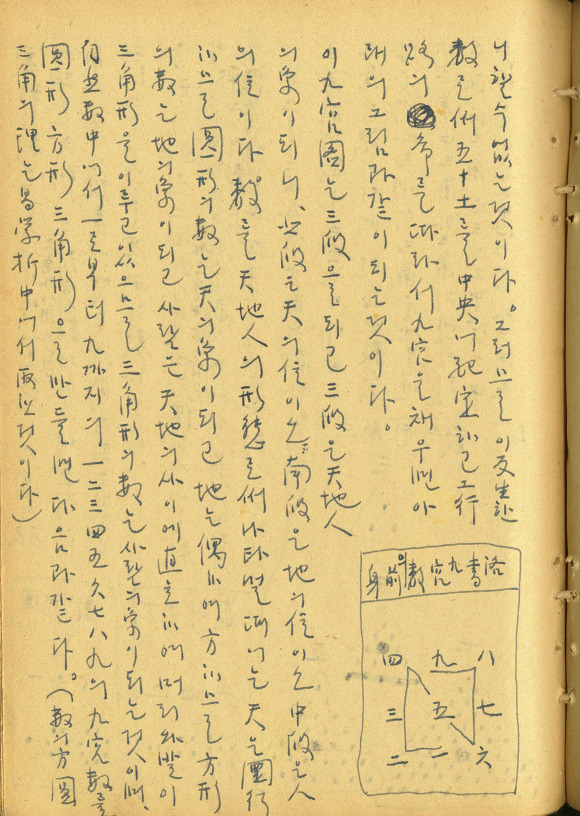 니할수없는것이다。그러므로 이交生한
數로써 五十土를 中央에 配定하고 五行
路의 命을 따라서 九宮을 채우면 아
래의 그림과 같이 되는것이다。
이 九宮圖는 三段으로되고 三段은 天地人
의 象이되니、上段은 天의位이오 南段은 地의位이오 中段은 人
의 位이다 數를 天地人의 形態로써 나타낼때에는 天은 圓行
함으로 圓形의數는 天의象이되고 地는 偶하여 方하므로 方形
의數는 地의象이되고 사람은 天地의 사이에 直立하여 머리와발이
三角形을 이루고 있으므로 三角形의數는 사람의象이되는것이며、
自然數中에서 一로부터 九까지의 一二三四五六七八九의 九宮數를
圓形 方形 三角形으로 만들면 다음과같다。(數의方圓
三角의理는 易學折中에서 取한것이다)
洛書九宮數의前身
四 九 八
三 五 七
二 一 六